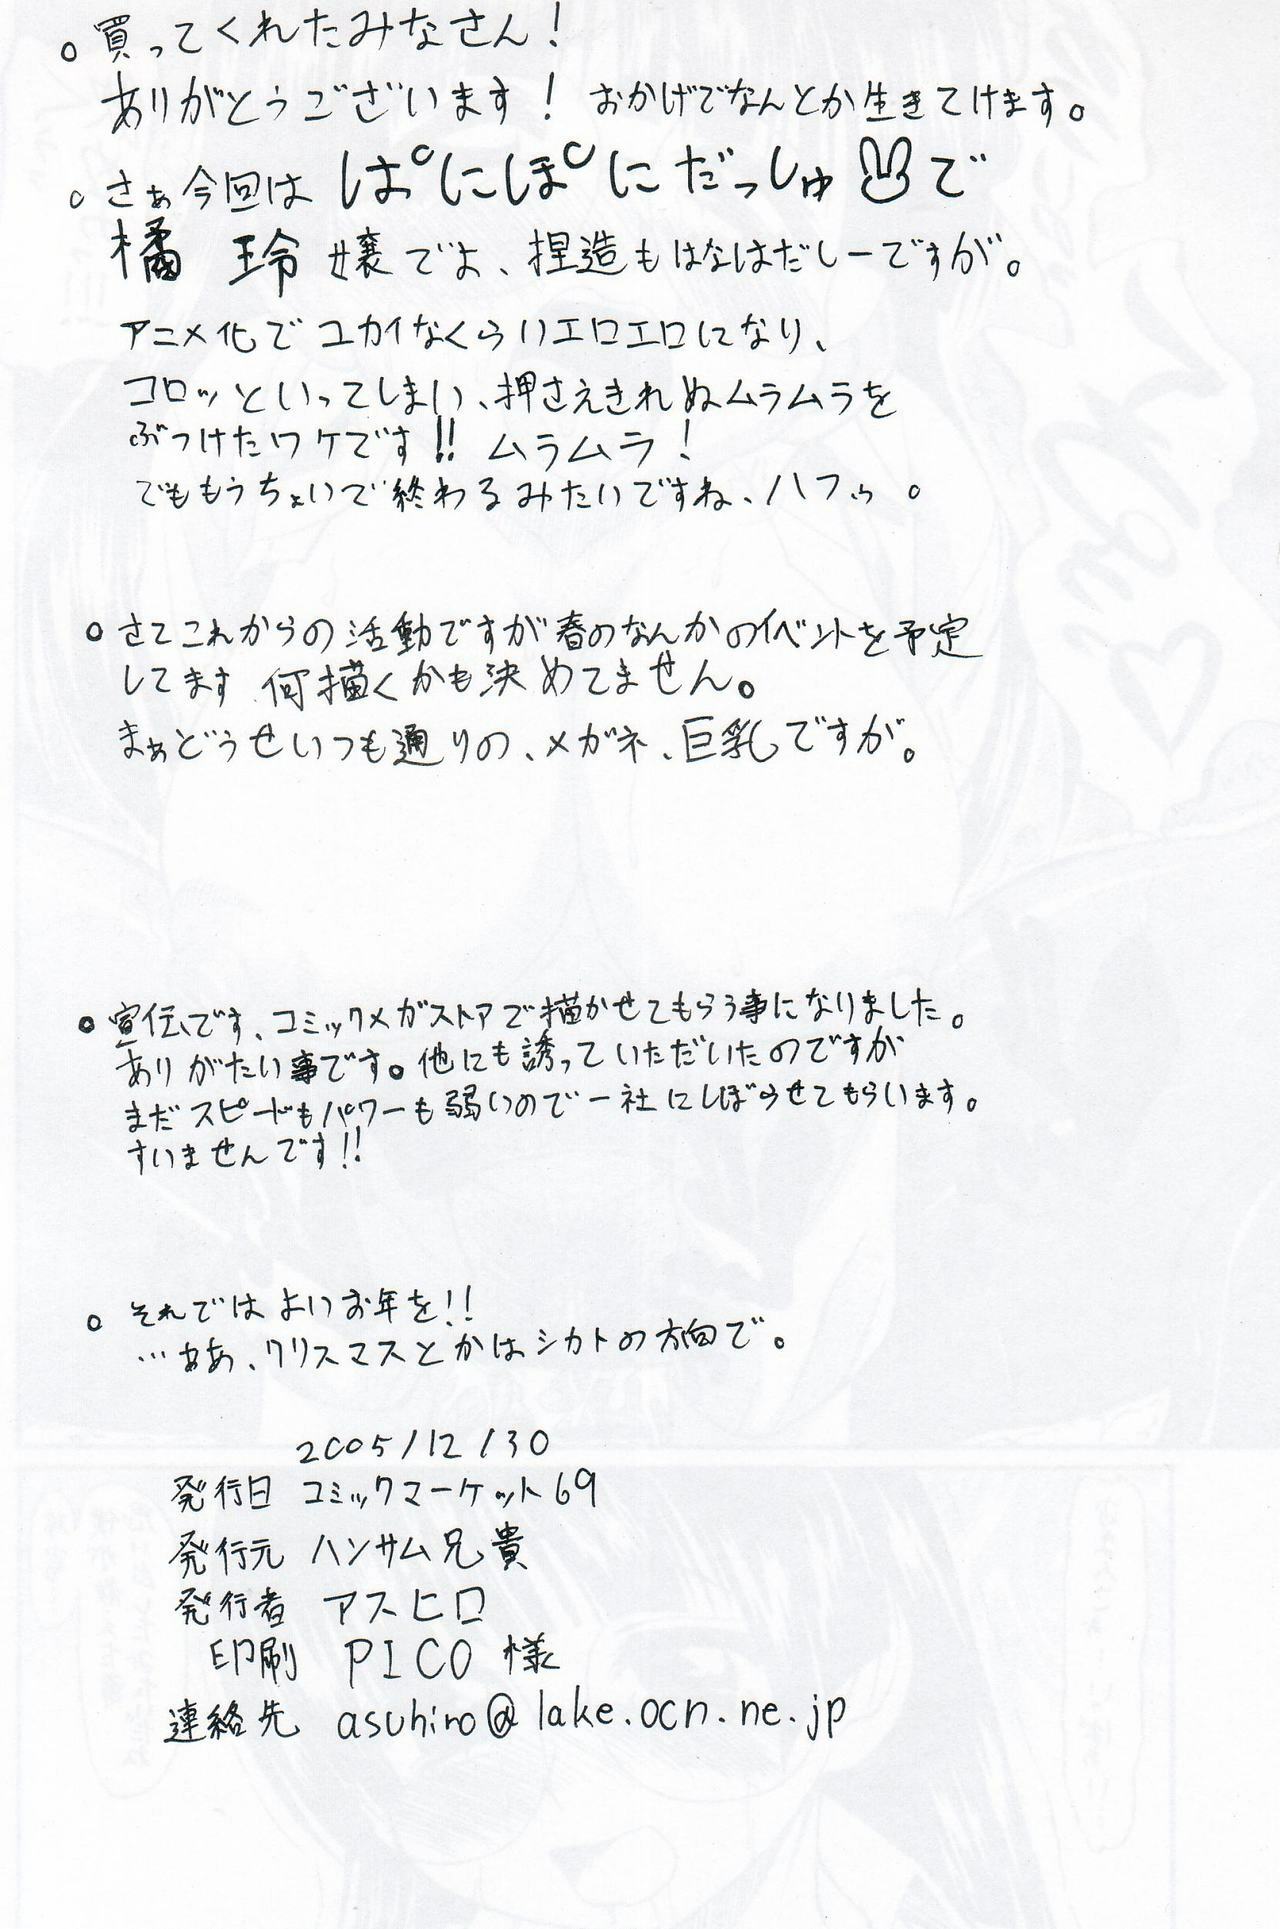 。買ってくれたみなさん！
ありがとうございます！ おかげでなんとか生きてけます。
。さぁ今回は ぱにぽにだっしゅで
橘 玲 嬢でよ、捏造もはなはだしーですが。
アニメ化でユカイなくらいエロエロになり、
コロッといってしまい、押さえきれぬムラムラを
ぶつけたワケです!! ムラムラ！
でももうちょいで終わるみたいですね、ハフゥ。
。さてこれからの活動ですが春のなんかのイベントを予定
してます 何描くかも決めてません。
まぁどうせいつも通りの、メガネ、巨乳ですが。
。宣伝です、コミックメガストアで描かせてもらう事になりました。
ありがたい事です。他にも誘っていただいたのですが
まだスピードもパワーも弱いので一社にしぼらせてもらいます。
すいませんです!!
。それではよいお年を!!
…ああ、クリスマスとかはシカトの方向で。
2005/12/30
発行日 コミックマーケット69
発行元 ハンサム兄貴
発行者 アスヒロ
印刷 PICO 様
連絡先 asuhiro@lake.ocn.ne.jp